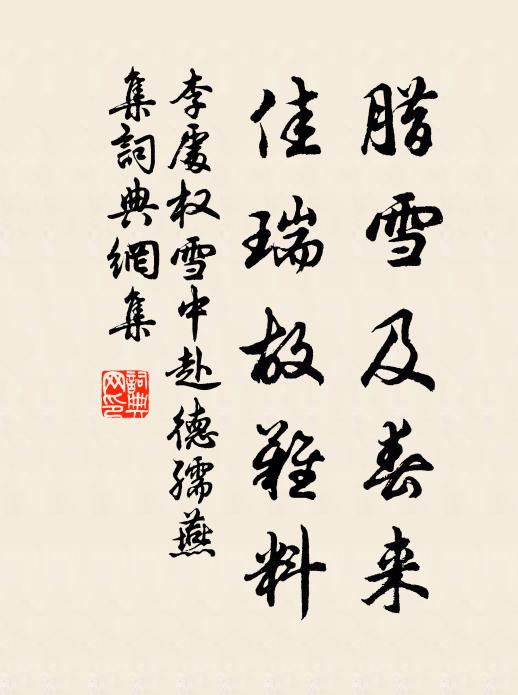 腊雪及春来
佳瑞故難料
李處权雪中赴德孺燕
集詞典網集
詞典
网印